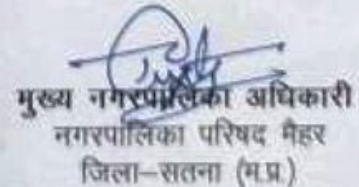 मुख्य नगरपालिका अधिकारी
नगरपालिका परिषद मैहर
जिला–सतना (म.प्र.)